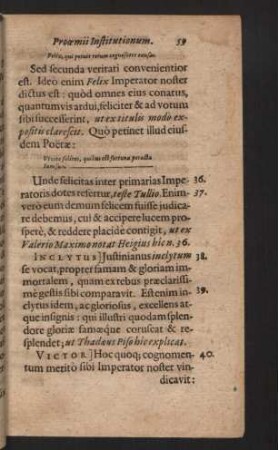 Proœmii Institutionum. 59
Felix, qui potuit rerum cognoscere causas.
Sed secunda veritati convenientior
est. Ideò enim Felix Imperator noster
dictus est: quòd omnes eius conatus,
quantumvis ardui, feliciter & ad votum
sibi successerint, ut ex titulis modo ex-
positis clarescit. Quò pertinet illud eius-
dem Poëtæ:
Vivite felices, quibus est fortuna peracta
Unde felicitas inter primarias Impe- 36.
ratoris dotes refertur, teste Tullio. Enim- 37.
verò eum demum felicem fuisse judica-
re debemus, cui & accipere lucem pro-
sperè, & reddere placidè contigit, ut ex
Valerio Maximo notat Heigius hic n. 36.
INCLYTUS] Justinianus inclytum 38.
se vocat, propter famam & gloriam im-
mortalem, quam ex rebus præclarissi-
mè gestis sibi comparavit. Est enim in- 39.
clytus idem, ac gloriosus, excellens at-
que insignis: qui illustri quodam splen-
dore gloriæ famæque coruscat & re-
splendet; ut Thadæus Piso hic explicat.
VICTOR] Hoc quoq; cognomen- 40.
tum meritò sibi Imperator noster vin-
dicavit: